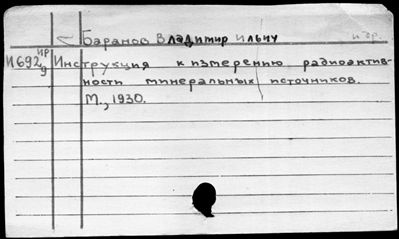 Баранов Владимир Ильич и др.
И692 ир
9 Инструкция к измерению радиоактив-
ности минеральных источников.
М., 1930.